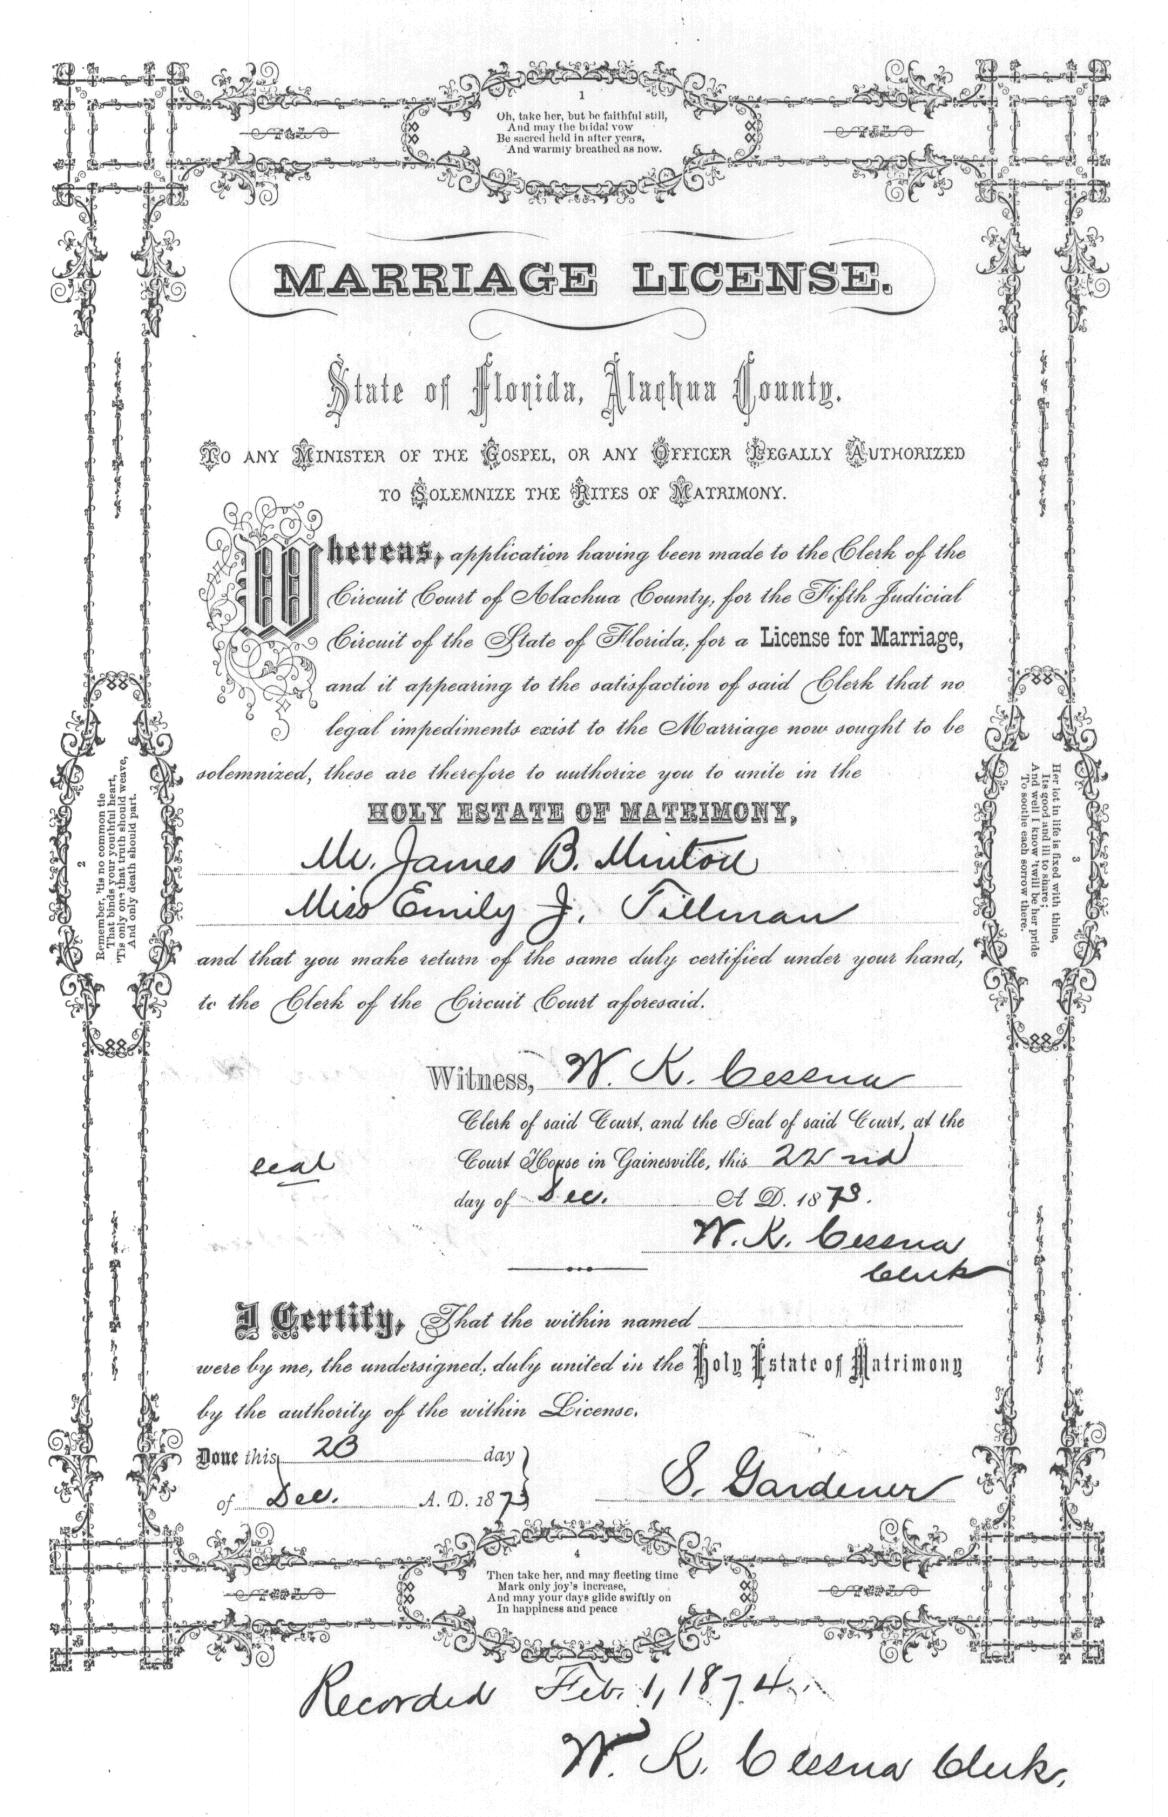 1
Oh, take her, but be faithful still,
And may the bridal vow
Be sacred held in after years,
And warmly breathed as now.
MARRIAGE LICENSE.
State of Florida, Alachua County.
To any Minister of the Gospel, or any Officer Legally Authorized
to Solemnize the Rites of Matrimony.
Whereas, application having been made to the Clerk of the
Circuit Court of Alachua County, for the Fifth Judicial
Circuit of the State of Florida, for a License for Marriage,
and it appearing to the satisfaction of said Clerk that no
legal impediments exist to the Marriage now sought to be
solemnized, these are therefore to authorize you to unite in the
HOLY ESTATE OF MATRIMONY,
Mr. James B. Minton
Miss Emily J. Tillman
and that you make return of the same duly certified under your hand,
to the Clerk of the Circuit Court aforesaid.
Witness, W. K. Cessna
Clerk of said Court, and the Seal of said Court, at the
seal
Court House in Gainesville, this 22nd
day of Dec. A D. 1873.
W. K. Cessna
Clerk
I Certify, That the within named
were by me, the undersigned, duly united in the Holy Estate of Matrimony
by the authority of the within License.
Done this 23 day
of Dec. A. D. 1873
S. Gardener
2
Remember, 'tis no common tie
That binds your youthful heart,
'Tis only one that truth should weave,
And only death should part.
3
Her lot in life is fixed with thine,
Its good and ill to share;
And well I know 'twill be her pride
To soothe each sorrow there.
4
Then take her, and may fleeting time
Mark only joy's increase,
And may your days glide swiftly on
In happiness and peace
Recorded Feb. 1, 1874.
W. K. Cessna Clerk.